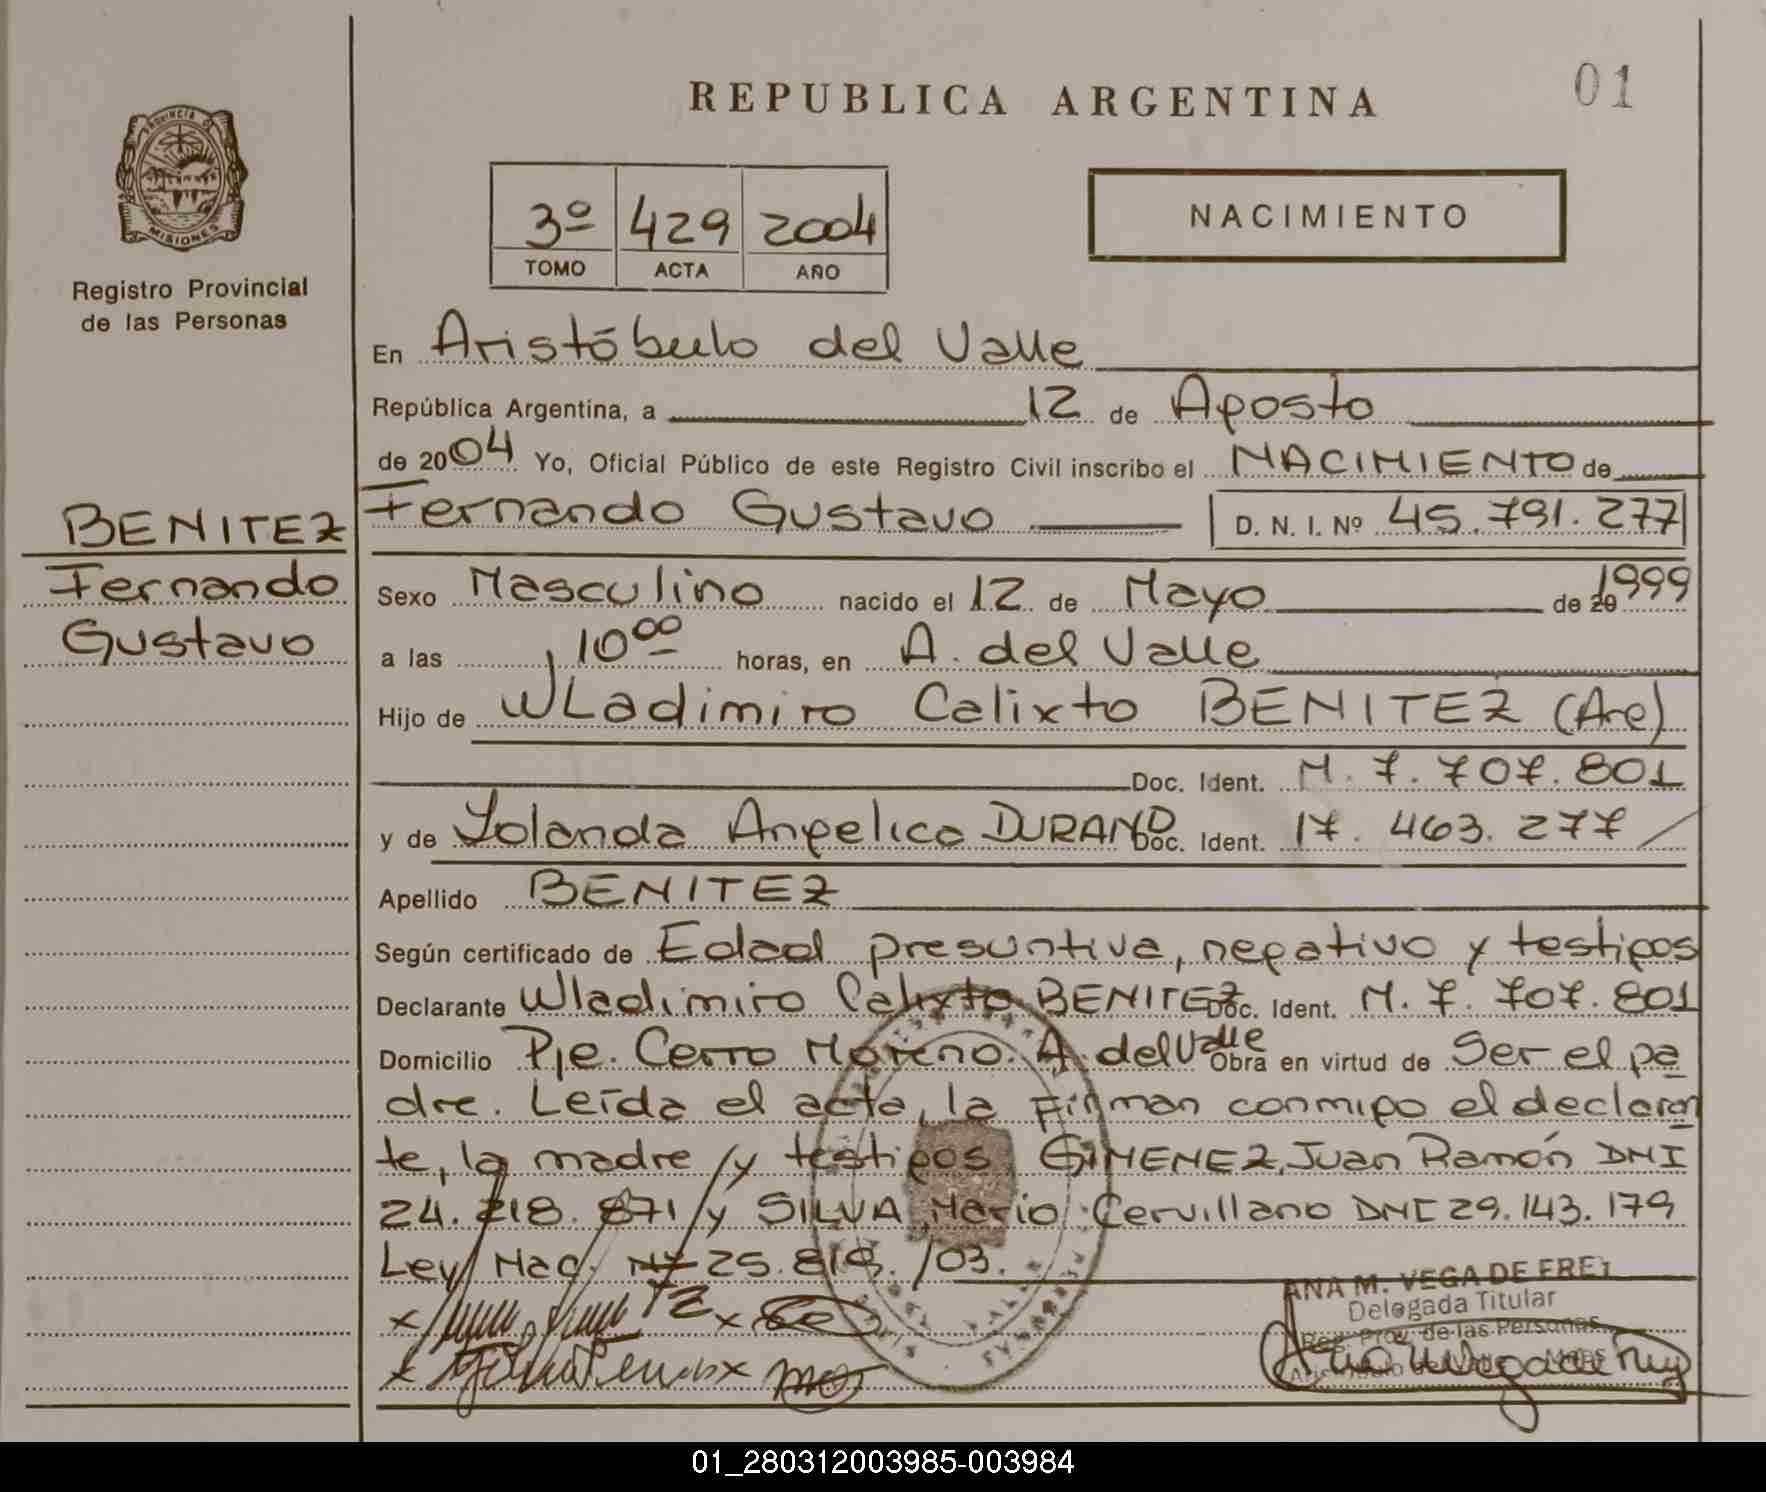 REPUBLICA ARGENTINA
01
PROVINCIA DE
MISIONES
Registro Provincial
de las Personas
3º 429 2004
TOMO ACTA AÑO
NACIMIENTO
En Aristóbulo del Valle
República Argentina, a 12 de Agosto
de 2004 Yo, Oficial Público de este Registro Civil inscribo el NACIMIENTO de
BENITEZ
Fernando
Gustavo
Fernando Gustavo D. N. I. Nº 45.791.277
Sexo Masculino nacido el 12 de Mayo de 20 1999
a las 10 00 horas, en A. del Valle
Hijo de WLadimiro Calixto BENITEZ (Are)
Doc. Ident. M. 7.707.801
y de Yolanda Angelica DURAND Doc. Ident. 17.463.277
Apellido BENITEZ
Según certificado de Edad presuntiva, negativo y testigos
Declarante Wladimiro Calixto BENITEZ Doc. Ident. M. 7.707.801
Domicilio Pje. Cerro Moreno. A. del Valle Obra en virtud de Ser el pa
dre. Leída el acta, la firman conmigo el declaran
te, la madre y testigos GIMENEZ, Juan Ramón DNI
24.218.871 y SILVA, Mario Cervillano DNI 29.143.179
Ley Nac. Nº 25.819./03.
ANA M. VEGA DE FREY
Delegada Titular
Reg. Prov. de las Personas
01_280312003985-003984